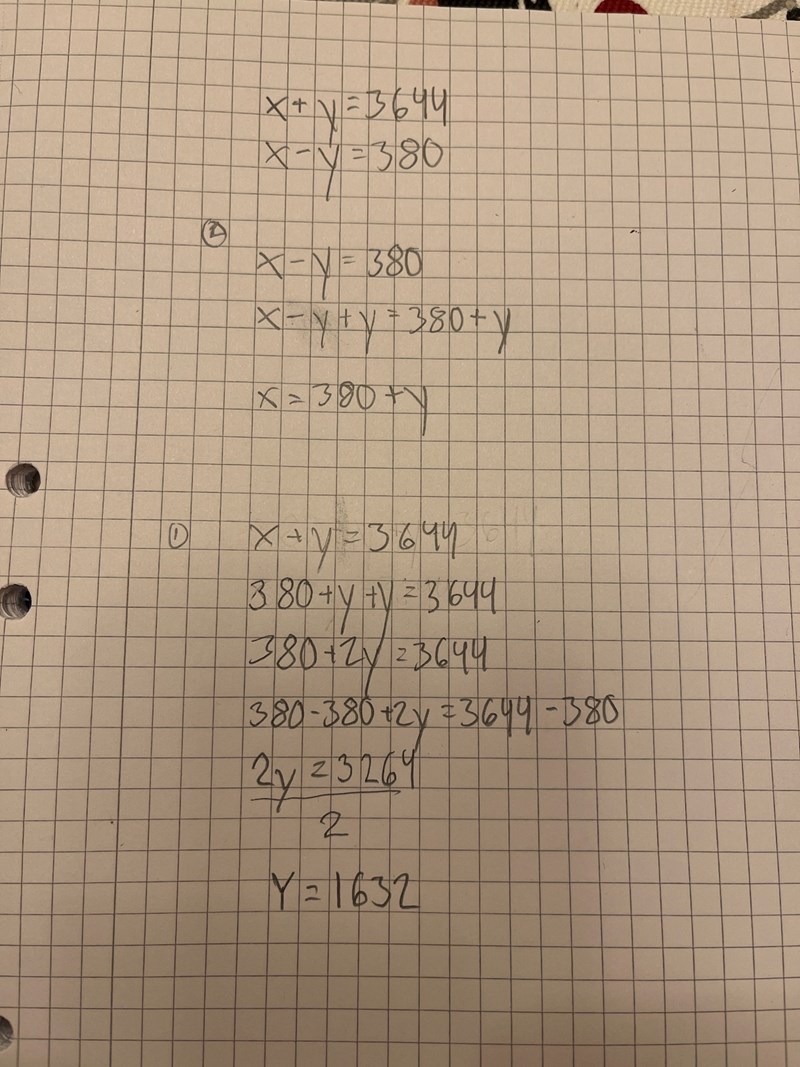 x+y=3644
x-y=380
②
x-y=380
x-y+y=380+y
x=380+y
① x+y=3644
380+y+y=3644
380+2y=3644
380-380+2y=3644-380
2y=3264
2
Y=1632